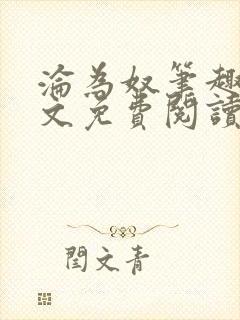 淪為奴筆趣
文免費閱讀
閏文青